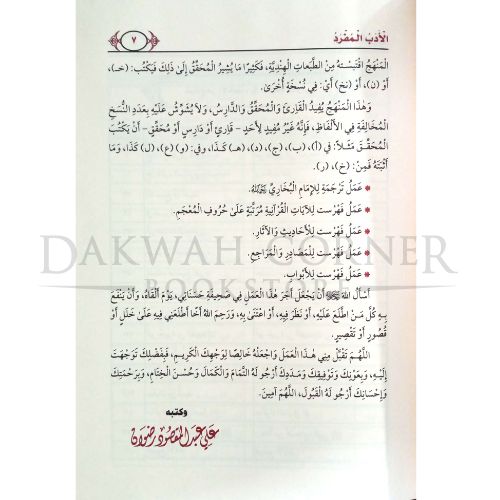 الْأَدَبُ الْمُفْرَدُ
٧
الْمَنْهَجُ اقْتَبَسْتُهُ مِنَ الطَّبَعَاتِ الْهِنْدِيَّةِ، فَكَثِيرًا مَا يُشِيرُ الْمُحَقِّقُ إِلَىٰ ذَلِكَ فَيَكْتُبُ: (خـ)،
أَوْ (ن)، أَوْ (نخ) أَيْ: فِي نُسْخَةٍ أُخْرَىٰ.
وَهَٰذَا الْمَنْهَجُ يُفِيدُ الْقَارِئَ وَالْمُحَقِّقَ وَالدَّارِسَ، وَلَا يُشَوِّشُ عَلَيْهِ بِعَدَدِ النُّسَخِ
الْمُخَالِفَةِ فِي الْأَلْفَاظِ، فَإِنَّهُ غَيْرُ مُفِيدٍ لِأَحَدٍ - قَارِئٍ أَوْ دَارِسٍ أَوْ مُحَقِّقٍ - أَنْ يَكْتُبَ
الْمُحَقِّقُ مَثَلًا: فِي (أ)، (ب)، (ج)، (د)، (هـ) كَذَا، وَفِي: (و)، (ع)، (ل) كَذَا، وَمَا
أَثْبَتُّهُ فَمِنْ: (خ)، (ر).
* عَمَلُ تَرْجَمَةٍ لِلْإِمَامِ الْبُخَارِيِّ
* عَمَلُ فَهْرَسْت لِلْآيَاتِ الْقُرْآنِيَّةِ مُرَتَّبَةٍ عَلَىٰ حُرُوفِ الْمُعْجَمِ.
* عَمَلُ فَهْرَسْت لِلْأَحَادِيثِ وَالْآثَارِ.
* عَمَلُ فَهْرَسْت لِلْمَصَادِرِ وَالْمَرَاجِعِ.
* عَمَلُ فَهْرَسْت لِلْأَبْوَابِ.
DAKWAH CORNER
BOOKSTORE
أَسْأَلُ اللهَ أَنْ يَجْعَلَ أَجْرَ هَٰذَا الْعَمَلِ فِي صَحِيفَةِ حَسَنَاتِي، يَوْمَ أَلْقَاهُ، وَأَنْ يَنْفَعَ
بِهِ كُلَّ مَنِ اطَّلَعَ عَلَيْهِ، أَوْ نَظَرَ فِيهِ، أَوِ اعْتَنَىٰ بِهِ، وَرَحِمَ اللهُ أَخًا أَطْلَعَنِي فِيهِ عَلَىٰ خَلَلٍ أَوْ
قُصُورٍ أَوْ تَقْصِيرٍ.
اللَّهُمَّ تَقَبَّلْ مِنِّي هَٰذَا الْعَمَلَ وَاجْعَلْهُ خَالِصًا لِوَجْهِكَ الْكَرِيمِ، فَبِفَضْلِكَ تَوَجَّهْتُ
إِلَيْهِ، وَبِعَوْنِكَ وَتَوْفِيقِكَ وَمَدَدِكَ أَرْجُو لَهُ التَّمَامَ وَالْكَمَالَ وَحُسْنَ الْخِتَامِ، وَبِرَحْمَتِكَ
وَإِحْسَانِكَ أَرْجُو لَهُ الْقَبُولَ، اللَّهُمَّ آمِينَ.
وكتبه
علي عبد المقصود رضوان